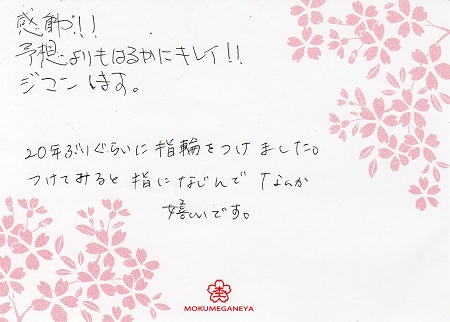 感動!!
予想よりもはるかにキレイ!!
ジマンします。
20年ぶりぐらいに指輪をつけました。
つけてみると指になじんでなんか
嬉しいです。
MOKUMEGANEYA